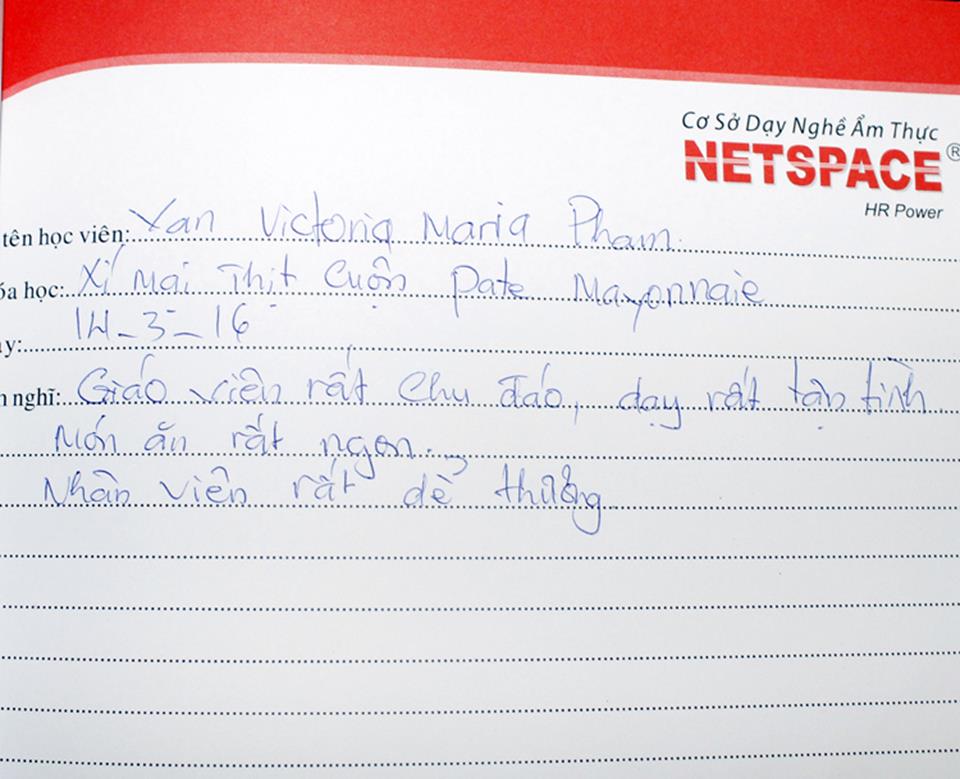 Cơ Sở Dạy Nghề Ẩm Thực
NETSPACE®
HR Power
tên học viên: Yan Victoria Maria Pham
óa học: Xí Mại Thịt Cuộn Pate Mayonnaie
y: 14-3-16
n nghĩ: Giáo viên rất chu đáo, dạy rất tận tình.
Món ăn rất ngon...
Nhân viên rất dể thương